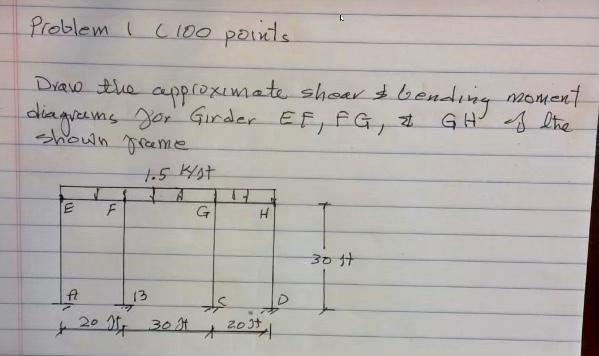 Problem 1 (100 points
Draw the approximate shear & bending moment
diagrams for Girder EF, FG, & GH of the
shown frame
1.5 K/ft
E F G H
30 ft
A B C D
20 ft 30 ft 20 ft